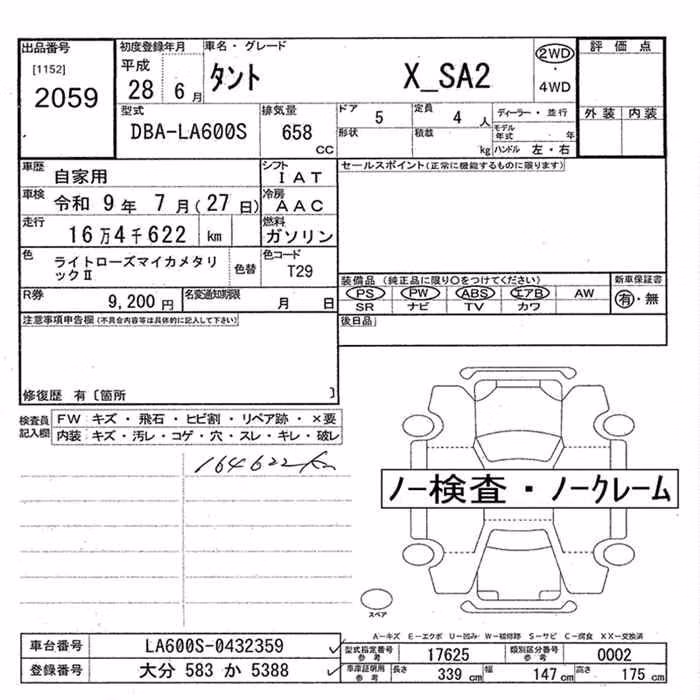 出品番号
[1152]
2059
初度登録年月
平成
28 6月
車名・グレード
タント X_SA2
2WD
・
4WD
評価点
外装 内装
型式
DBA-LA600S
排気量
658
CC
ドア 5
定員 4 人
ディーラー・並行
形状
積載 kg
モデル年式 年
ハンドル 左・右
車歴
自家用
シフト
IAT
セールスポイント(正常に機能するものに限ります)
車検
令和 9年 7月(27日)
冷房
AAC
走行
16万4千622 km
燃料
ガソリン
色
ライトローズマイカメタリ
ックⅡ
色替
色コード
T29
装備品 (純正品に限り○をつけてください)
PS PW ABS エアB AW
SR ナビ TV カワ
新車保証書
有・無
R券
9,200円
名変通知期限
月 日
後日品
注意事項申告欄(不具合内容等は具体的に記入して下さい)
修復歴 有〔箇所 〕
検査員
記入欄
FW キズ・飛石・ヒビ割・リペア跡・×要
内装 キズ・汚レ・コゲ・穴・スレ・キレ・破レ
164622km
ノー検査・ノークレーム
スペア
A-キズ E-エクボ U-凹み W-補修跡 S-サビ C-腐食 XX-交換済
車台番号 LA600S-0432359
型式指定番号
参考
17625
類別区分番号
参考
0002
登録番号 大分 583 か 5388
車庫証明用
参考
長さ 339 cm 幅 147 cm 高さ 175 cm